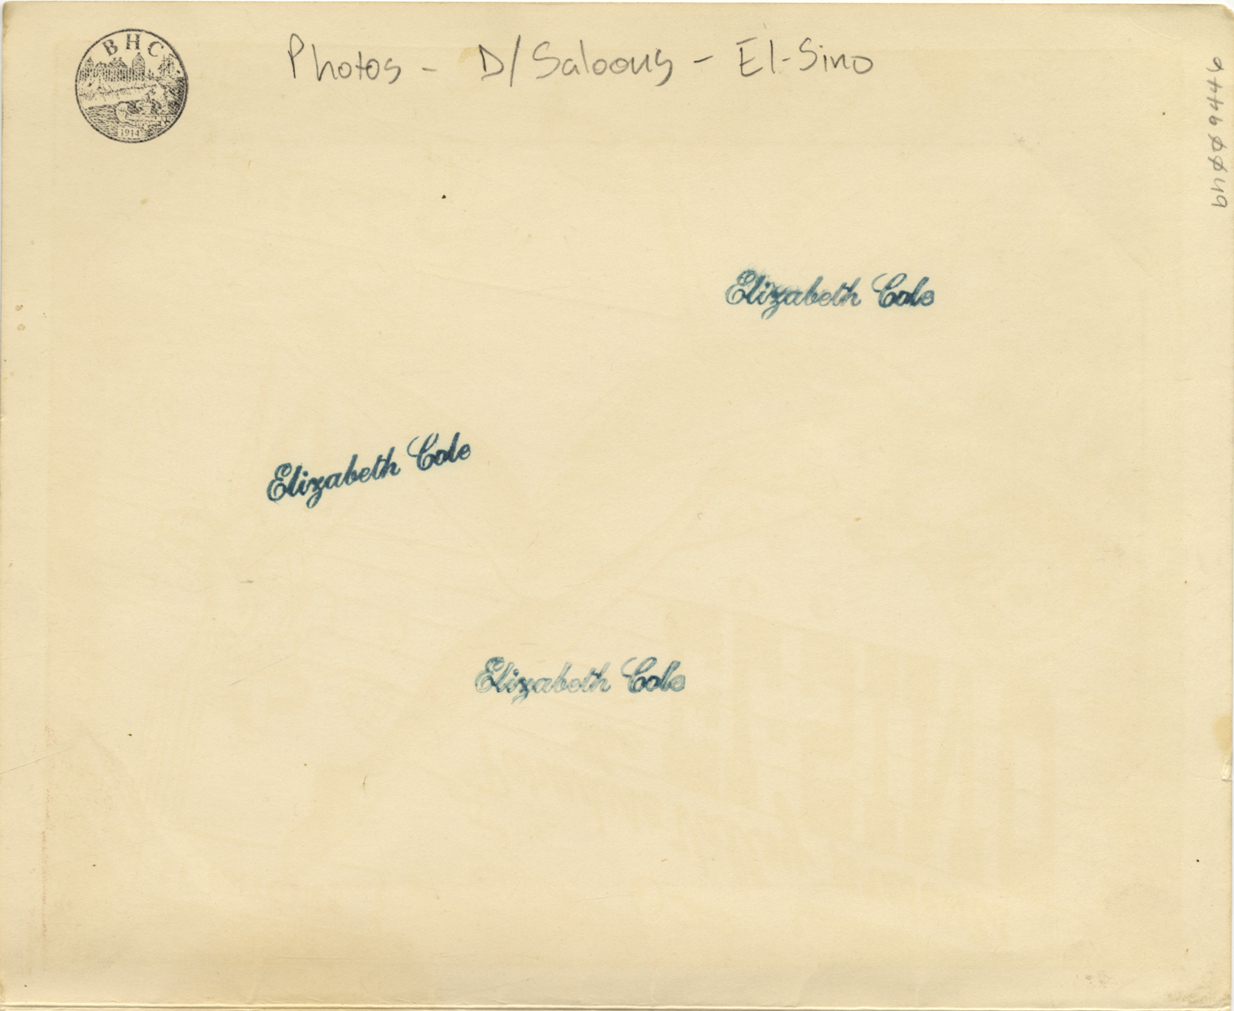 BHC
1914
Photos - D/Saloons - El-Sino
Elizabeth Cole
Elizabeth Cole
Elizabeth Cole